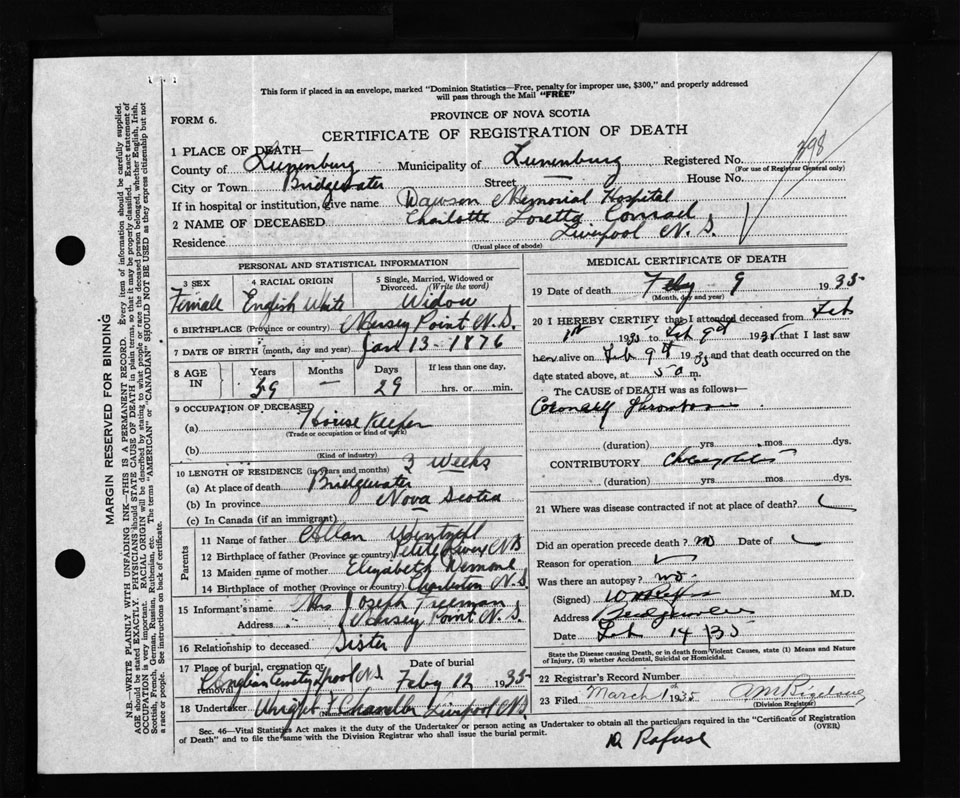 This form if placed in an envelope, marked "Dominion Statistics—Free, penalty for improper use, $300," and properly addressed
will pass through the Mail "FREE"
FORM 6.
PROVINCE OF NOVA SCOTIA
CERTIFICATE OF REGISTRATION OF DEATH
298
1 PLACE OF DEATH—
County of Lunenburg Municipality of Lunenburg Registered No.
(For use of Registrar General only)
City or Town Bridgewater Street House No.
If in hospital or institution, give name Dawson Memorial Hospital
2 NAME OF DECEASED Charlotte Loretta Conrad
Residence Liverpool N.S.
(Usual place of abode)
PERSONAL AND STATISTICAL INFORMATION
3 SEX 4 RACIAL ORIGIN 5 Single, Married, Widowed or Divorced. (Write the word)
Female English White Widow
6 BIRTHPLACE (Province or country) Mersey Point N.S.
7 DATE OF BIRTH (month, day and year) Jan 13 - 1876
8 AGE IN Years Months Days If less than one day,
59 — 29 hrs. or min.
9 OCCUPATION OF DECEASED
(a) House Keeper
(Trade or occupation or kind of work)
(b)
(Kind of industry)
10 LENGTH OF RESIDENCE (in years and months) 2 Weeks
(a) At place of death Bridgewater
(b) In province Nova Scotia
(c) In Canada (if an immigrant)
Parents
11 Name of father Allan
12 Birthplace of father (Province or country) N.S.
13 Maiden name of mother Elizabeth
14 Birthplace of mother (Province or country) Charleston N.S.
15 Informant's name Mrs Joseph Freeman
Address Mersey Point N.S.
16 Relationship to deceased Sister
17 Place of burial, cremation or removal Date of burial
L'pool N.S Feby 12 1935
18 Undertaker Wright & Chandler Liverpool N.S.
(Name and address)
MEDICAL CERTIFICATE OF DEATH
19 Date of death Feby 9 1935
(Month, day and year)
20 I HEREBY CERTIFY that I attended deceased from Feb
1st 1935 to Feb 9th 1935 that I last saw
her alive on Feb 9th 1935 and that death occurred on the
date stated above, at 5 a m.
The CAUSE OF DEATH was as follows:—
Coronary Thrombosis
(duration) yrs. mos. dys.
CONTRIBUTORY
(duration) yrs. mos. dys.
21 Where was disease contracted if not at place of death?
Did an operation precede death? no Date of
Reason for operation
Was there an autopsy? no
(Signed) M.D.
Address Bridgewater
Date Feb 14 / 35
State the Disease causing Death, or in death from Violent Causes, state (1) Means and Nature
of Injury, (2) whether Accidental, Suicidal or Homicidal.
22 Registrar's Record Number
23 Filed March 1 1935
(Division Registrar)
Sec. 46—Vital Statistics Act makes it the duty of the Undertaker or person acting as Undertaker to obtain all the particulars required in the "Certificate of Registration
of Death" and to file the same with the Division Registrar who shall issue the burial permit. (OVER)
D. Rafuse
MARGIN RESERVED FOR BINDING
N.B.—WRITE PLAINLY WITH UNFADING INK—THIS IS A PERMANENT RECORD. Every item of information should be carefully supplied.
AGE should be stated EXACTLY. PHYSICIANS should STATE CAUSE OF DEATH in plain terms, so that it may be properly classified. Exact statement of
OCCUPATION is very important. RACIAL ORIGIN will be described by stating to what people or race the deceased person belonged, whether English, Irish,
Scottish, French, German, Russian, Ruthenian, etc. The terms "AMERICAN" or "CANADIAN" SHOULD NOT BE USED as they express citizenship but not
a race or people. See instructions on back of certificate.